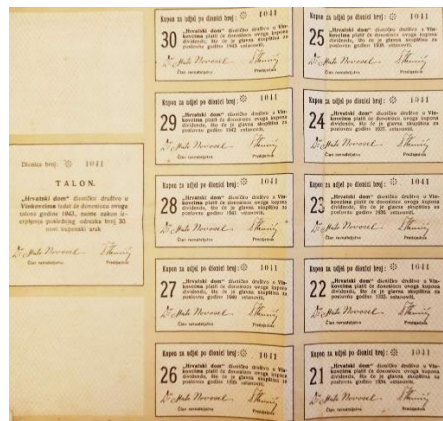 Dionica broj: 1041
TALON.
„Hrvatski dom“ dioničko društvo u
Vinkovcima izdat će donosiocu ovoga
talona godine 1943, nakon
30.
novi kuponski arak
Dr Mato Novosel
Član ravnateljstva Predsjednik
Kupon za udjel po dionici broj: 1041
30 „Hrvatski dom“ dioničko društvo u Vin-
kovcima platit će donosiocu ovoga kupona
dividendu, što će je glavna skupština za
poslovnu godinu 1943. ustanoviti.
Dr Mato Novosel
Član ravnateljstva Predsjednik
Kupon za udjel po dionici broj: 1041
29 „Hrvatski dom“ dioničko društvo u Vin-
kovcima platit će donosiocu ovoga kupona
dividendu, što će je glavna skupština za
poslovnu godinu 1942. ustanoviti.
Dr Mato Novosel
Član ravnateljstva Predsjednik
Kupon za udjel po dionici broj: 1041
28 „Hrvatski dom“ dioničko društvo u Vin-
kovcima platit će donosiocu ovoga kupona
dividendu, što će je glavna skupština za
poslovnu godinu 1941. ustanoviti.
Dr Mato Novosel
Član ravnateljstva Predsjednik
Kupon za udjel po dionici broj: 1041
27 „Hrvatski dom“ dioničko društvo u Vin-
kovcima platit će donosiocu ovoga kupona
dividendu, što će je glavna skupština za
poslovnu godinu 1940. ustanoviti.
Dr Mato Novosel
Član ravnateljstva Predsjednik
Kupon za udjel po dionici broj: 1041
26 „Hrvatski dom“ dioničko društvo u Vin-
kovcima platit će donosiocu ovoga kupona
dividendu, što će je glavna skupština za
poslovnu godinu 1939. ustanoviti.
Dr Mato Novosel
Član ravnateljstva Predsjednik
Kupon za udjel po dionici broj: 1041
25 „Hrvatski dom“ dioničko društvo u Vin-
kovcima platit će donosiocu ovoga kupona
dividendu, što će je glavna skupština za
poslovnu godinu 1938. ustanoviti.
Dr Mato Novosel
Član ravnateljstva Predsjednik
Kupon za udjel po dionici broj: 1041
24 „Hrvatski dom“ dioničko društvo u Vin-
kovcima platit će donosiocu ovoga kupona
dividendu, što će je glavna skupština za
poslovnu godinu ustanoviti.
Dr Mato Novosel
Član ravnateljstva Predsjednik
Kupon za udjel po dionici broj: 1041
23 „Hrvatski dom“ dioničko društvo u Vin-
kovcima platit će donosiocu ovoga kupona
dividendu, što će je glavna skupština za
poslovnu godinu 1936. ustanoviti.
Dr Mato Novosel
Član ravnateljstva Predsjednik
Kupon za udjel po dionici broj: 1041
22 „Hrvatski dom“ dioničko društvo u Vin-
kovcima platit će donosiocu ovoga kupona
dividendu, što će je glavna skupština za
poslovnu godinu 1935. ustanoviti.
Dr Mato Novosel
Član ravnateljstva Predsjednik
Kupon za udjel po dionici broj: 1041
21 „Hrvatski dom“ dioničko društvo u Vin-
kovcima platit će donosiocu ovoga kupona
dividendu, što će je glavna skupština za
poslovnu godinu 1934. ustanoviti.
Dr Mato Novosel
Član ravnateljstva Predsjednik